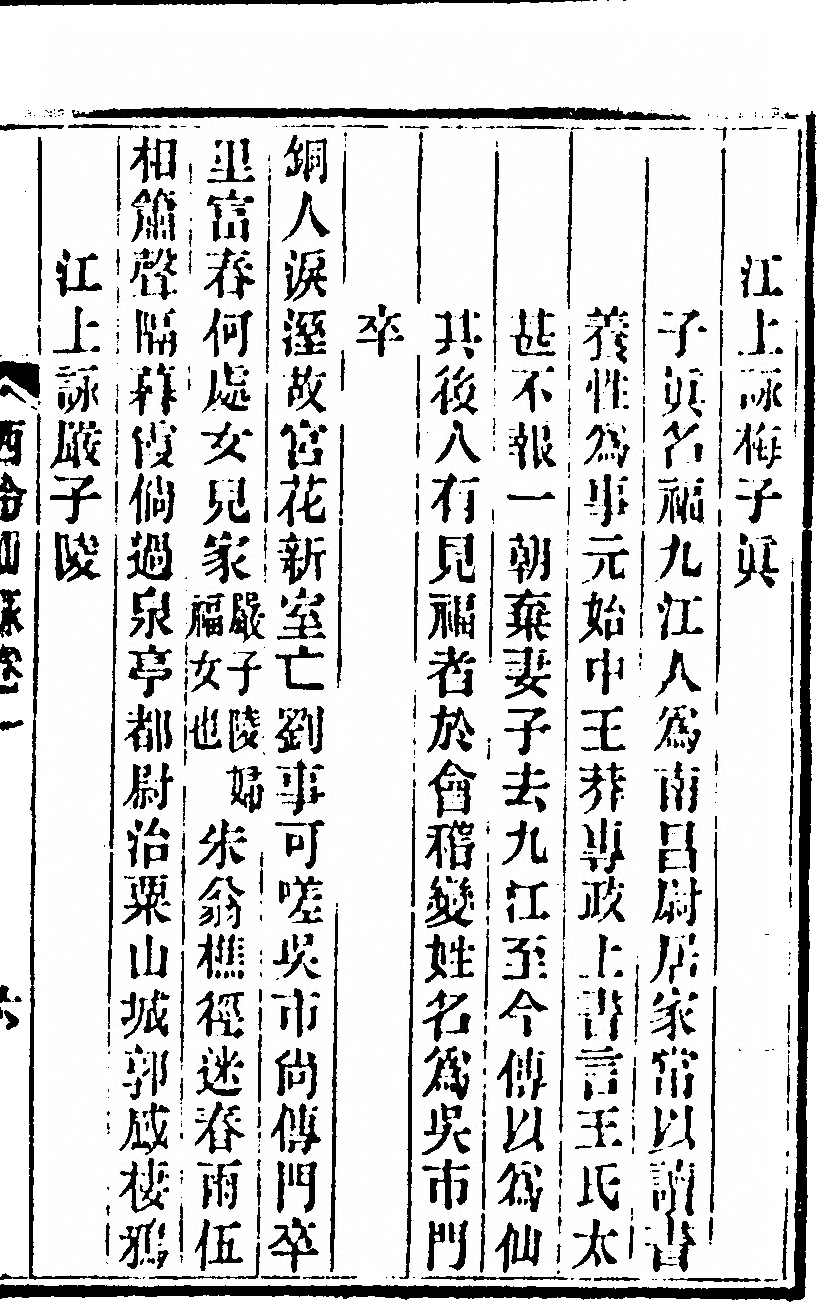 江上詠梅子眞
子眞名福九江人爲南昌尉居家常以讀書
養性爲事元始中王莽專政上書言王氏太
甚不報一朝棄妻子去九江至今傳以爲仙
其後人有見福者於會稽變姓名爲吳市門
卒
銅人淚溼故宮花新室亡劉事可嗟吳市尚傳門卒
里富春何處女兒家嚴子陵婦福女也朱翁樵徑迷春雨伍
相簫聲隔暮霞倘過泉亭都尉治粟山城郭感棲鴉
江上詠嚴子陵
西泠
六